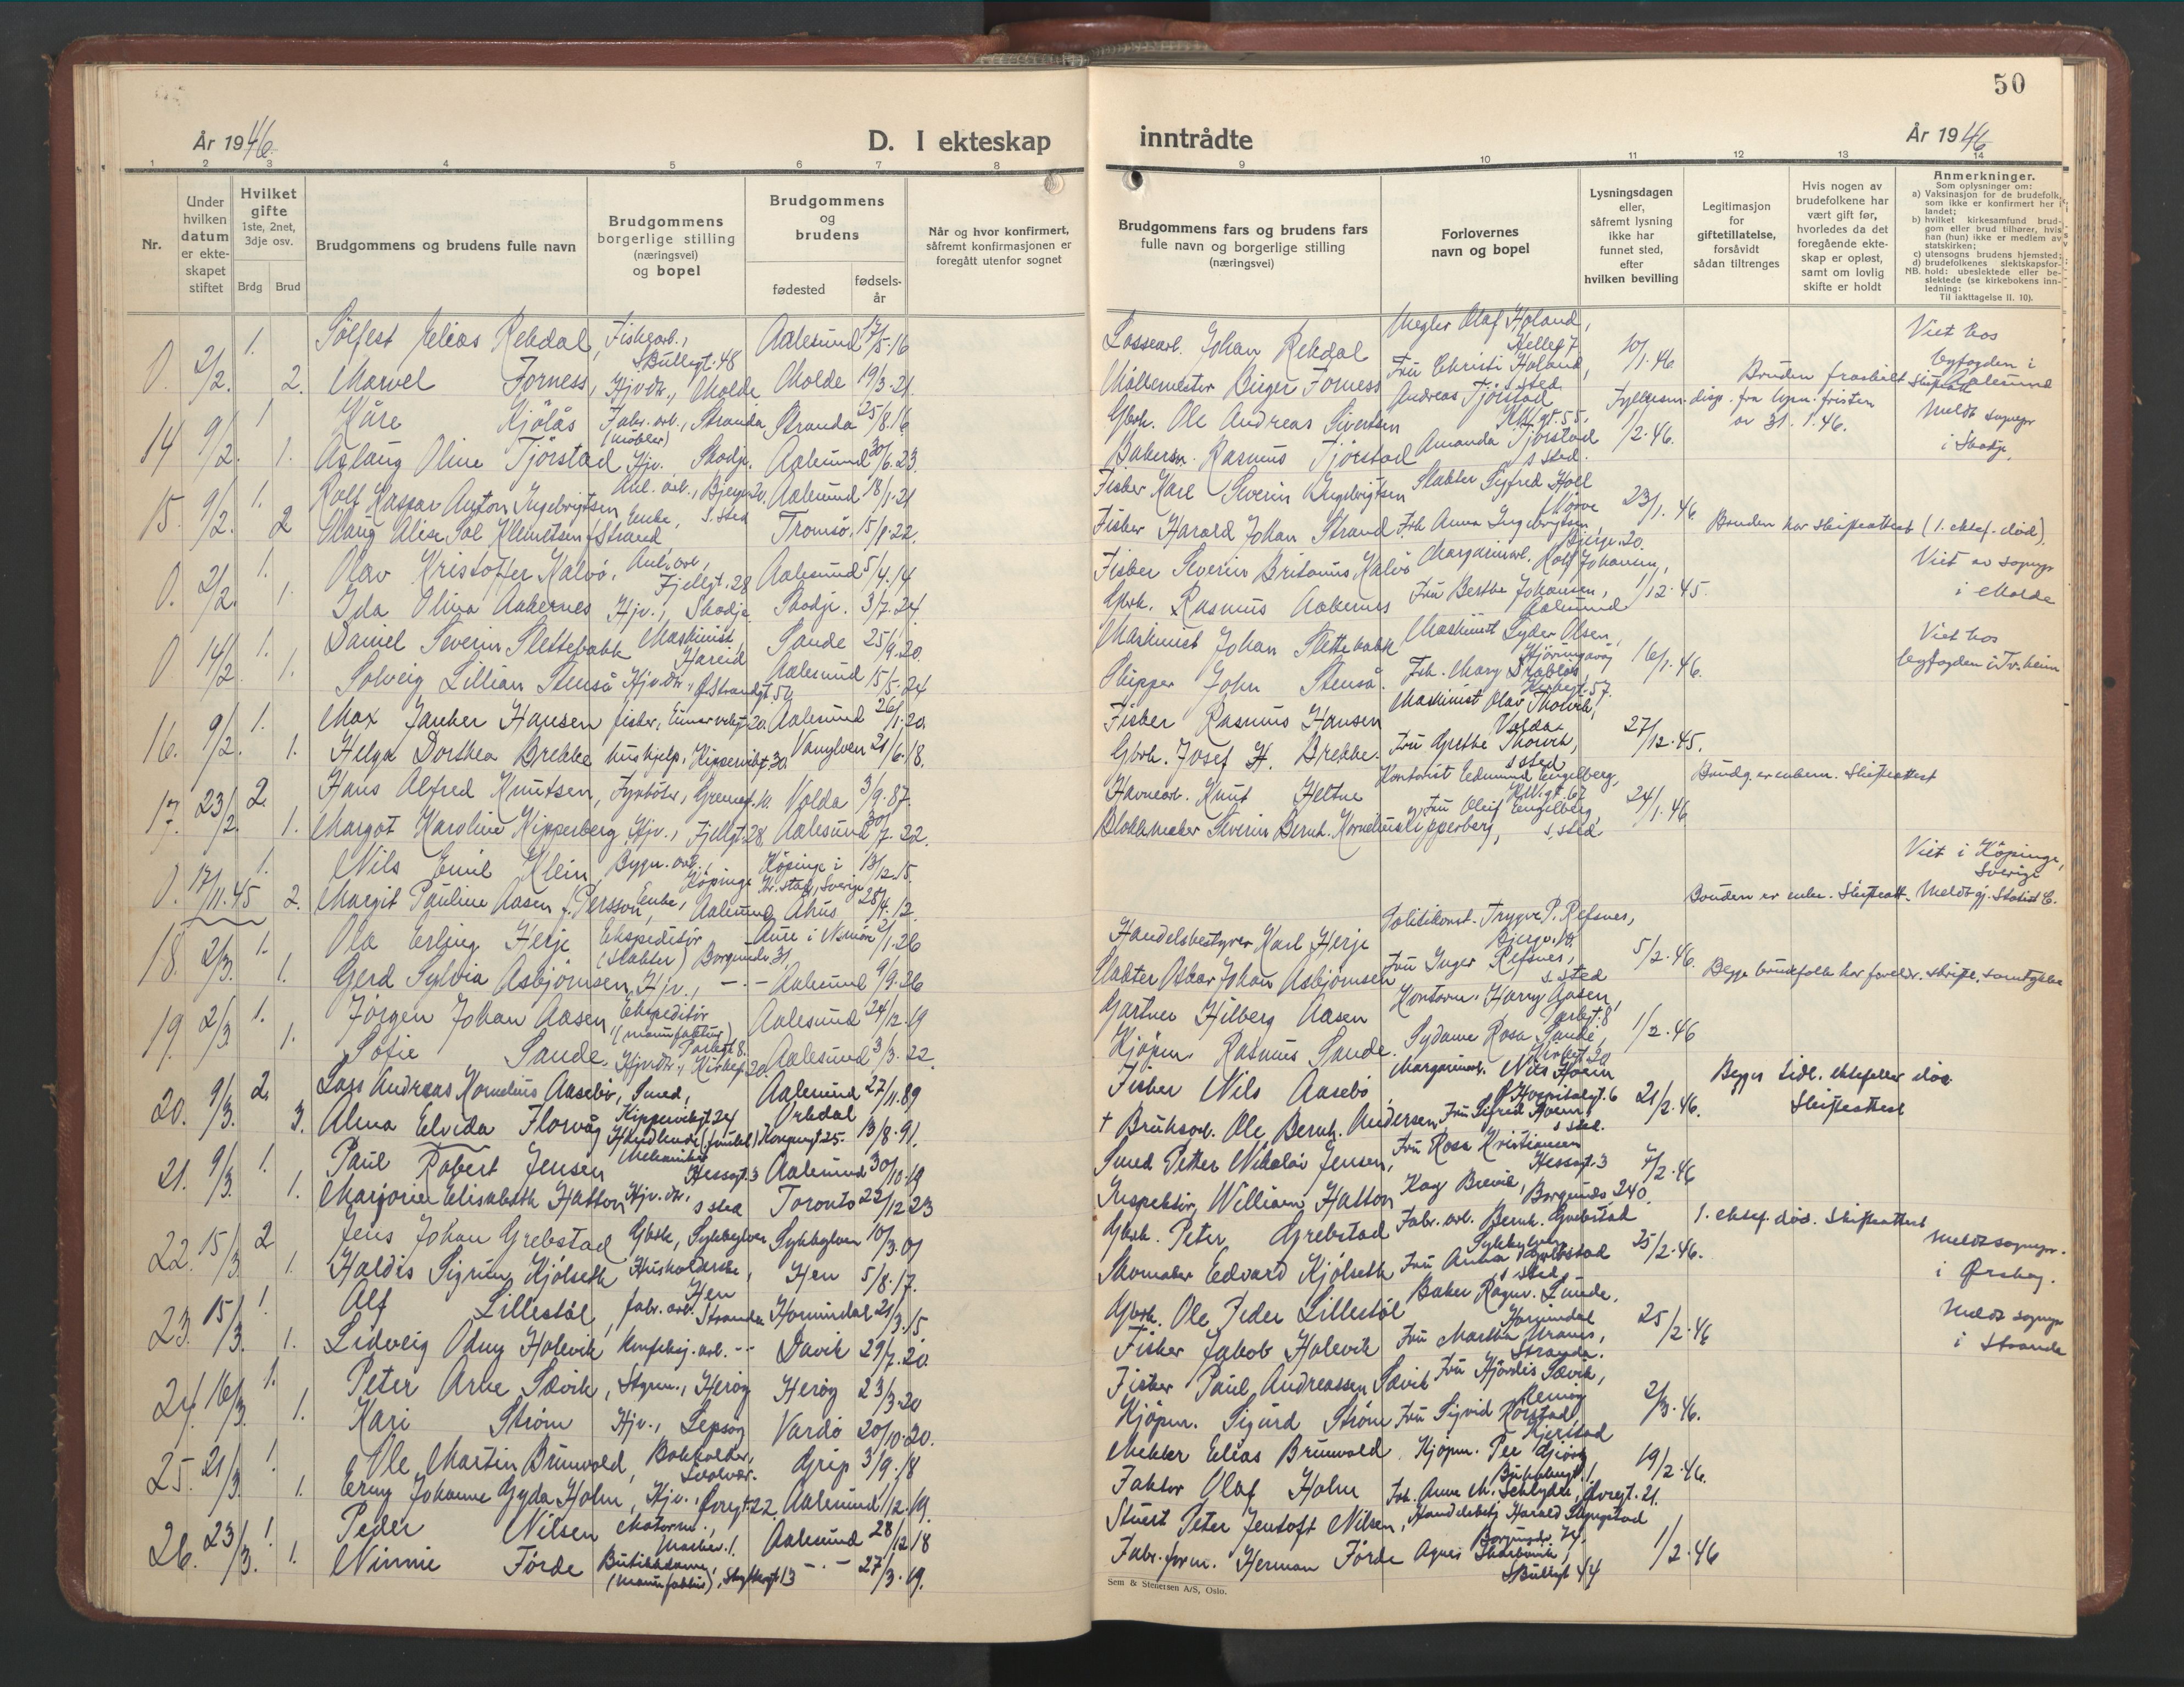 50
År 1946.
D. I ekteskap inntrådte
År 1946
1 2 3 4 5 6 7 8 9 10 11 12 13 14
Nr.
Under hvilken datum er ekteskapet stiftet
Hvilket gifte 1ste, 2net, 3dje osv.
Brdg Brud
Brudgommens og brudens fulle navn
Brudgommens borgerlige stilling (næringsvei) og bopel
Brudgommens og brudens
fødested
fødselsår
Når og hvor konfirmert, såfremt konfirmasjonen er foregått utenfor sognet
Brudgommens fars og brudens fars fulle navn og borgerlige stilling (næringsvei)
Forlovernes navn og bopel
Lysningsdagen eller, såfremt lysning ikke har funnet sted, efter hvilken bevilling
Legitimasjon for giftetillatelse, forsåvidt sådan tiltrenges
Hvis nogen av brudefolkene har vært gift før, hvorledes da det foregående ekteskap er opløst, samt om lovlig skifte er holdt
Anmerkninger.
Som oplysninger om:
a) Vaksinasjon for de brudefolk, som ikke er konfirmert her i landet;
b) hvilket kirkesamfund brudgom eller brud tilhører, hvis han (hun) ikke er medlem av statskirken;
c) utensogns brudens hjemsted;
d) brudefolkenes slektskapsforhold: ubeslektede eller beslektede (se kirkebokens innledning:
NB. Til iakttagelse II. 10).
0. 2/2. 1. Sölfest Rekdal, Fiskearb., St. Bullsgt. 48 Aalesund 17/5-16 Lossearb. Johan Rekdal Megler Olaf Holand, Kellef 7 10/1.46 Viet hos
2. Marvel Forness, Hjv.dtr., Molde Molde 19/3-21. Målbemester Birger Forness Fru Christi Holand, s sted Bruden fraskilt Skifteatt. byfogden i Aalesund
14 9/2. 1 Kåre Kjölås Fabr. arb., Stranda (Möbler) Stranda 25/8.16 Gbrk. Ole Andreas Sivertsen Andreas Tjörstad K.W.gt. 55, Fylkesm. disp. fra lysn. fristen av 31.1.46. Meldt sognepr
1. Aslaug Oline Tjörstad Hjv., Skodje Aalesund 30/6.23. Bakersv. Rasmus Tjörstad Amanda Tjörstad s sted. 1/2.46. i Skodje.
15. 9/2. 1. Rolf Kaspar Anton Ingebrigtsen Anl. arb., Bjergv. 20. Aalesund 18/1.21 Fisker Karl Severin Ingebrigtsen Slakter Sigfred Holl 23/1.46.
2 Enke, s. sted Tromsö 15/8.22. Fisker Harald Johan Strand Frk Anna Ingebrigtsen, Bjergv. 20. Bruden har skifteattest (1. ektef. död).
0. 2/2. 1. Olav Kristoffer Kalvö, Anl. arb., Fjellgt. 28 Aalesund 5/4.14 Fisker Severin Britanus Kalvö Margarinarb. Rolf Johansen, Viet av sognepr
1. Ida Olina Aakernes Hjv., Skodje Skodje. 3/7.24 Gbrk. Rasmus Aakernes Fru Berthe Johansen, Aalesund 1/12.45. i Molde
0 14/2. 1. Daniel Severin Slettebakk Maskinist, Hareid Sande 25/9.20. Maskinist Johan Slettebakk Maskinist Lyder Olsen, Hjörungavåg 16/1.46. Viet hos
1. Solveig Lillian Stenså Hjv.dtr., Ö Strandgt. 54 Aalesund 15/5.24 Skipper John Stenså. Frk. Mary Drablös, Kirkegt. 57. byfogden i Tr.heim
16. 9/2. 1. Max Junker Hansen fisker, Aalesund 26/1.20. Fisker Rasmus Hansen Maskinist Olav Thorvik, Volda 27/12.45.
1. Helga Dorthea Brekke hushjelp, Kipperviksgt. 30. Vanylven 21/6.18. Gbrk. Josef H. Brekke. Fru Grethe Thorvik, s sted
17. 23/2. 2. Hans Alfred Knutsen, Fyrböter, Grensegt. 10 Volda 3/9.87. Havnearb. Knut Heltne Kontorist Edmund Engelberg, K.W.gt. 67 24/1.46. Brudg. er enkem. Skifteattest
1. Margot Karoline Kipperberg, Hjv., Fjellgt. 28 Aalesund 30/7.22. Blokkmaker Severin Bernh. Kornelius Kipperberg, Fru Oleif Engelberg, s. sted
0. 17/11.45 1. Nils Emil Klein, Bygn. arb., Köpinge Köpinge i Kr.stad, Sverige 13/12.15. Viet i Köpinge, Sverige
2. Margit Pauline Aasen f. Persson, Enke, Aalesund Åhus 28/4.12. Bruden er enke. Skifteatt. Meldt gj. Statist. C.
18. 2/3. 1. Ola Erling Herje Ekspeditör (Slakter) Borgundv. 31 Aure i N.möre 2/1.26 Handelsbestyrer Karl Herje Politikonst. Trygve P. Refsnes, Bjergv. 10. 5/2.46.
1. Gerd Sylvia Asbjörnsen, Hjv., -"- Aalesund 9/9.26 Slakter Oskar Johan Asbjörnsen Fru Inger Refsnes, s sted Begge brudefolk har foreldr. skriftl. samtykke
19. 2/3 1. Jörgen Johan Aasen Ekspeditör (manufaktur) Parkgt 8. Aalesund 24/12.19 Gartner Hilberg Aasen Kontorm. Harry Aasen, Parkgt. 8 1/2.46
1. Sofie Sande. Hjv.dtr., Kirkegt. 20. Aalesund 3/3.22. Kjöpm. Rasmus Sande. Sydame Rosa Sande, Kirkegt. 20
20. 9/3. 2. Lars Andreas Kornelius Aasebö, Smed, Kipperviksgt. 24 Aalesund 27/11.89 Fisker Nils Aasebö Margarinarb. Nils Hoem Ö Hospitalsgt. 6 21/2.46. Begges tidl. ektefeller död
3. Alma Elvida Florvåg Kongensgt 25. Orkdal 13/8.91. † Bruksarb. Ole Bernh. Andersen, Fru Sigfred Hoem, s sted. Skifteattest
21. 9/3. 1. Paul Robert Jensen Mekaniker Hessagt. 3 Aalesund 30/10.19 Smed Petter Nikolai Jensen, Fru Rosa Kristiansen Hessagt. 3 7/2.46
1. Marjorie Elisabeth Hatton Hjv. dtr., s sted Toronto 22/12 23 Inspektör, William Hatton Kay Brevik, Borgundv 240.
22. 15/3 2 Jens Johan Grebstad Gbrk, Sykkylven Sykkylven 10/3.01 Gbrk. Peter Grebstad Fabr. arb. Bernh. Grebstad Sykkylven 25/2.46. 1. ektef. död. Skifteattest Meldt sognepr.
1. Haldis Sigrun Kjölseth Husholderske, Hen Hen 5/8.17. Skomaker Edvard Kjölseth Fru Anna Grebstad s sted i Ørskog.
23. 15/3. 1. Alf Lillestöl, fabr. arb. Stranda Hornindal 21/3.15 Gbrk. Ole Peder Lillestöl Baker Ragnv. Lunde, Hornindal 25/2.46 Meldt sognepr
1. Lidveig Odny Holevik Konfeksj. arb. -"- Davik 29/7.20. Fisker Jakob Holevik Fru Martha Uranes, Stranda. i Stranda
24. 16/3. 1. Peter Arne Sævik, Styrm., Heröy Heröy 23/3.20 Fisker Paul Andreassen Sævik Fru Hjördis Sævik, Remöy 2/3.46.
1. Kari Ström Hjv., Lepsöy Vardö 20/10.20. Kjöpm. Sigurd Ström Fru Sigrid Rörstad, Kjerstad
25. 21/3. 1. Ole Martin Brunvold, Bokholder, Svolvær. Grip 3/9.18 Mekler Elias Brunvold. Kjöpm. Per Gjörv 19/2.46.
1. Erny Johanne Gyda Holm, Hjv., Övregt. 22. Aalesund 1/12.19. Faktor Olaf Holm Frk. Anne M. Schlyter, Övregt. 21.
26. 23/3. 1. Peder Nilsen Motorm., Aalesund 28/12 18 Stuert Peter Jentoft Nilsen, Handelsbetj Harald Slyngstad Borgundv. 1/2.46
1. Ninnie Förde Butikkdame, (Manufaktur), -"- 27/3.19. Fabr. form. Herman Förde Agnes St. Bullsgt 44
Sem & Stenersen A/S, Oslo.